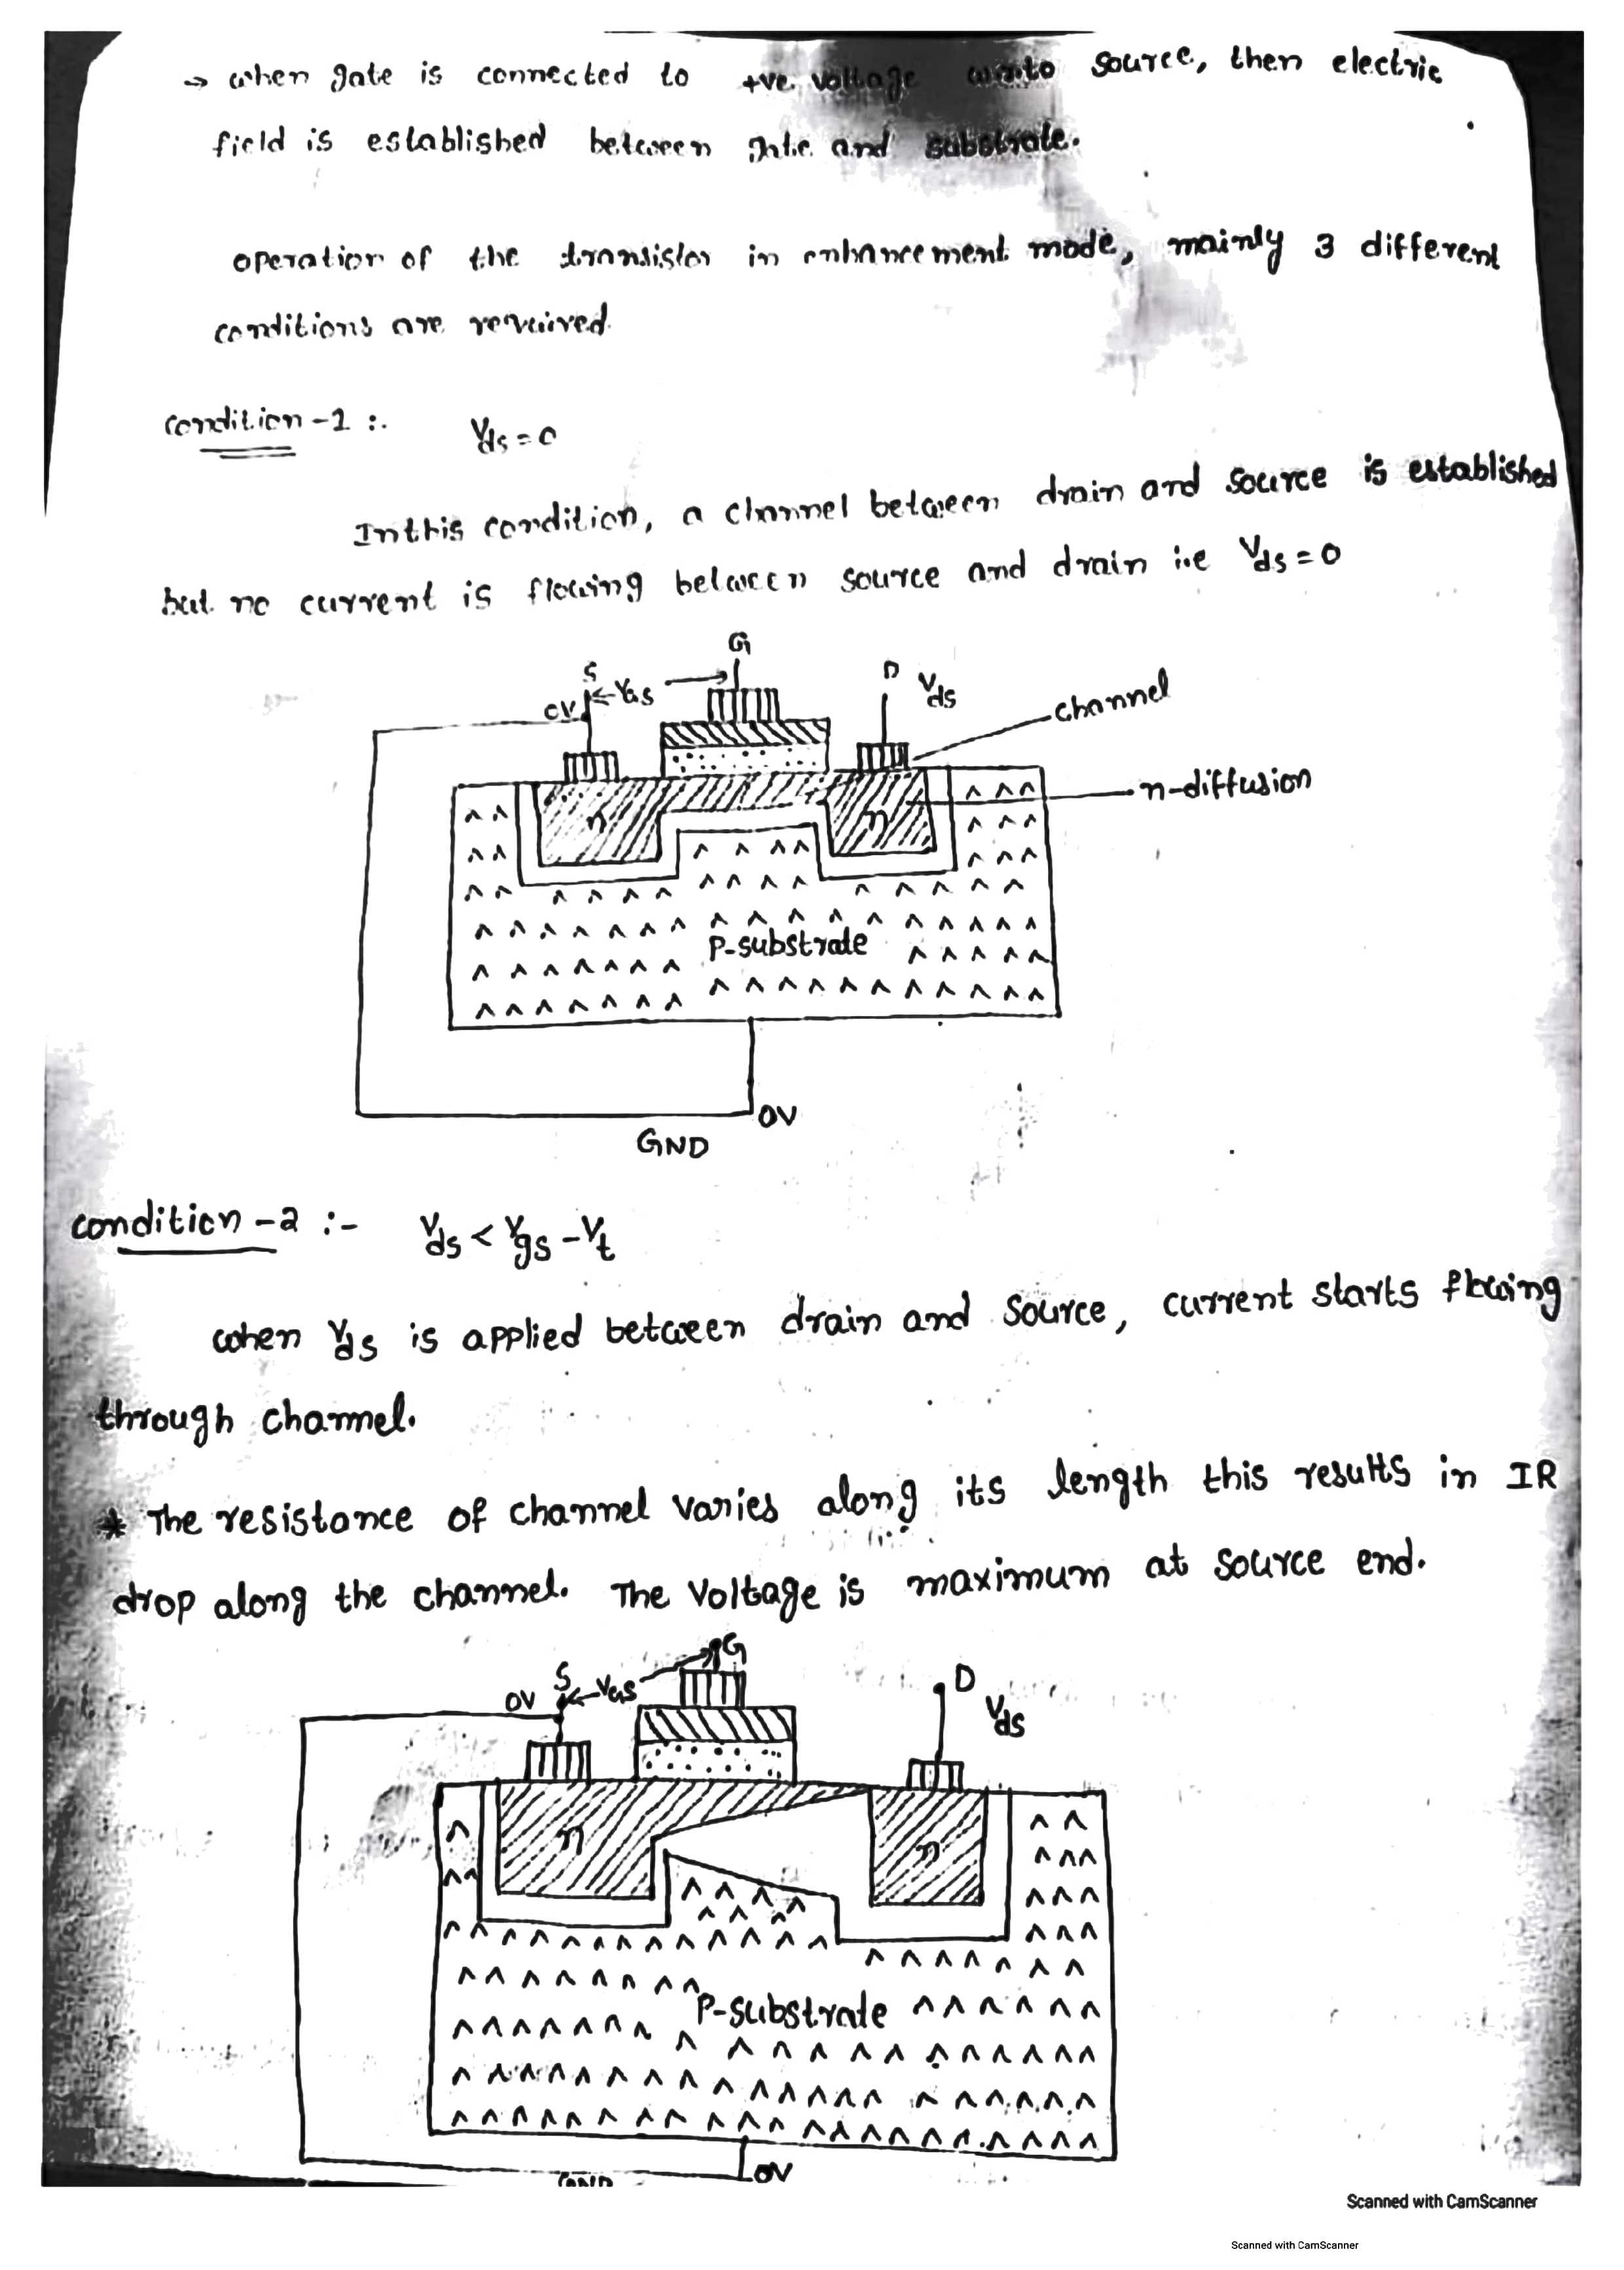 → when gate is connected to +ve voltage w.r.to source, then electric
field is established between gate and substrate.
operation of the transistor in enhancement mode, mainly 3 different
conditions are required.
condition -1 :. Vds = 0
In this condition, a channel between drain and source is established
but no current is flowing between source and drain i.e Vds = 0
G
S ←VGS→ D Vds
0V
channel
n-diffusion
n n
P-substrate
0V
GND
condition -2 :- Vds < Vgs - Vt
when Vds is applied between drain and source, current starts flowing
through channel.
* The resistance of channel varies along its length this results in IR
drop along the channel. The voltage is maximum at source end.
G
S ←VGS D
0V Vds
n n
P-substrate
0V
GND
Scanned with CamScanner
Scanned with CamScanner